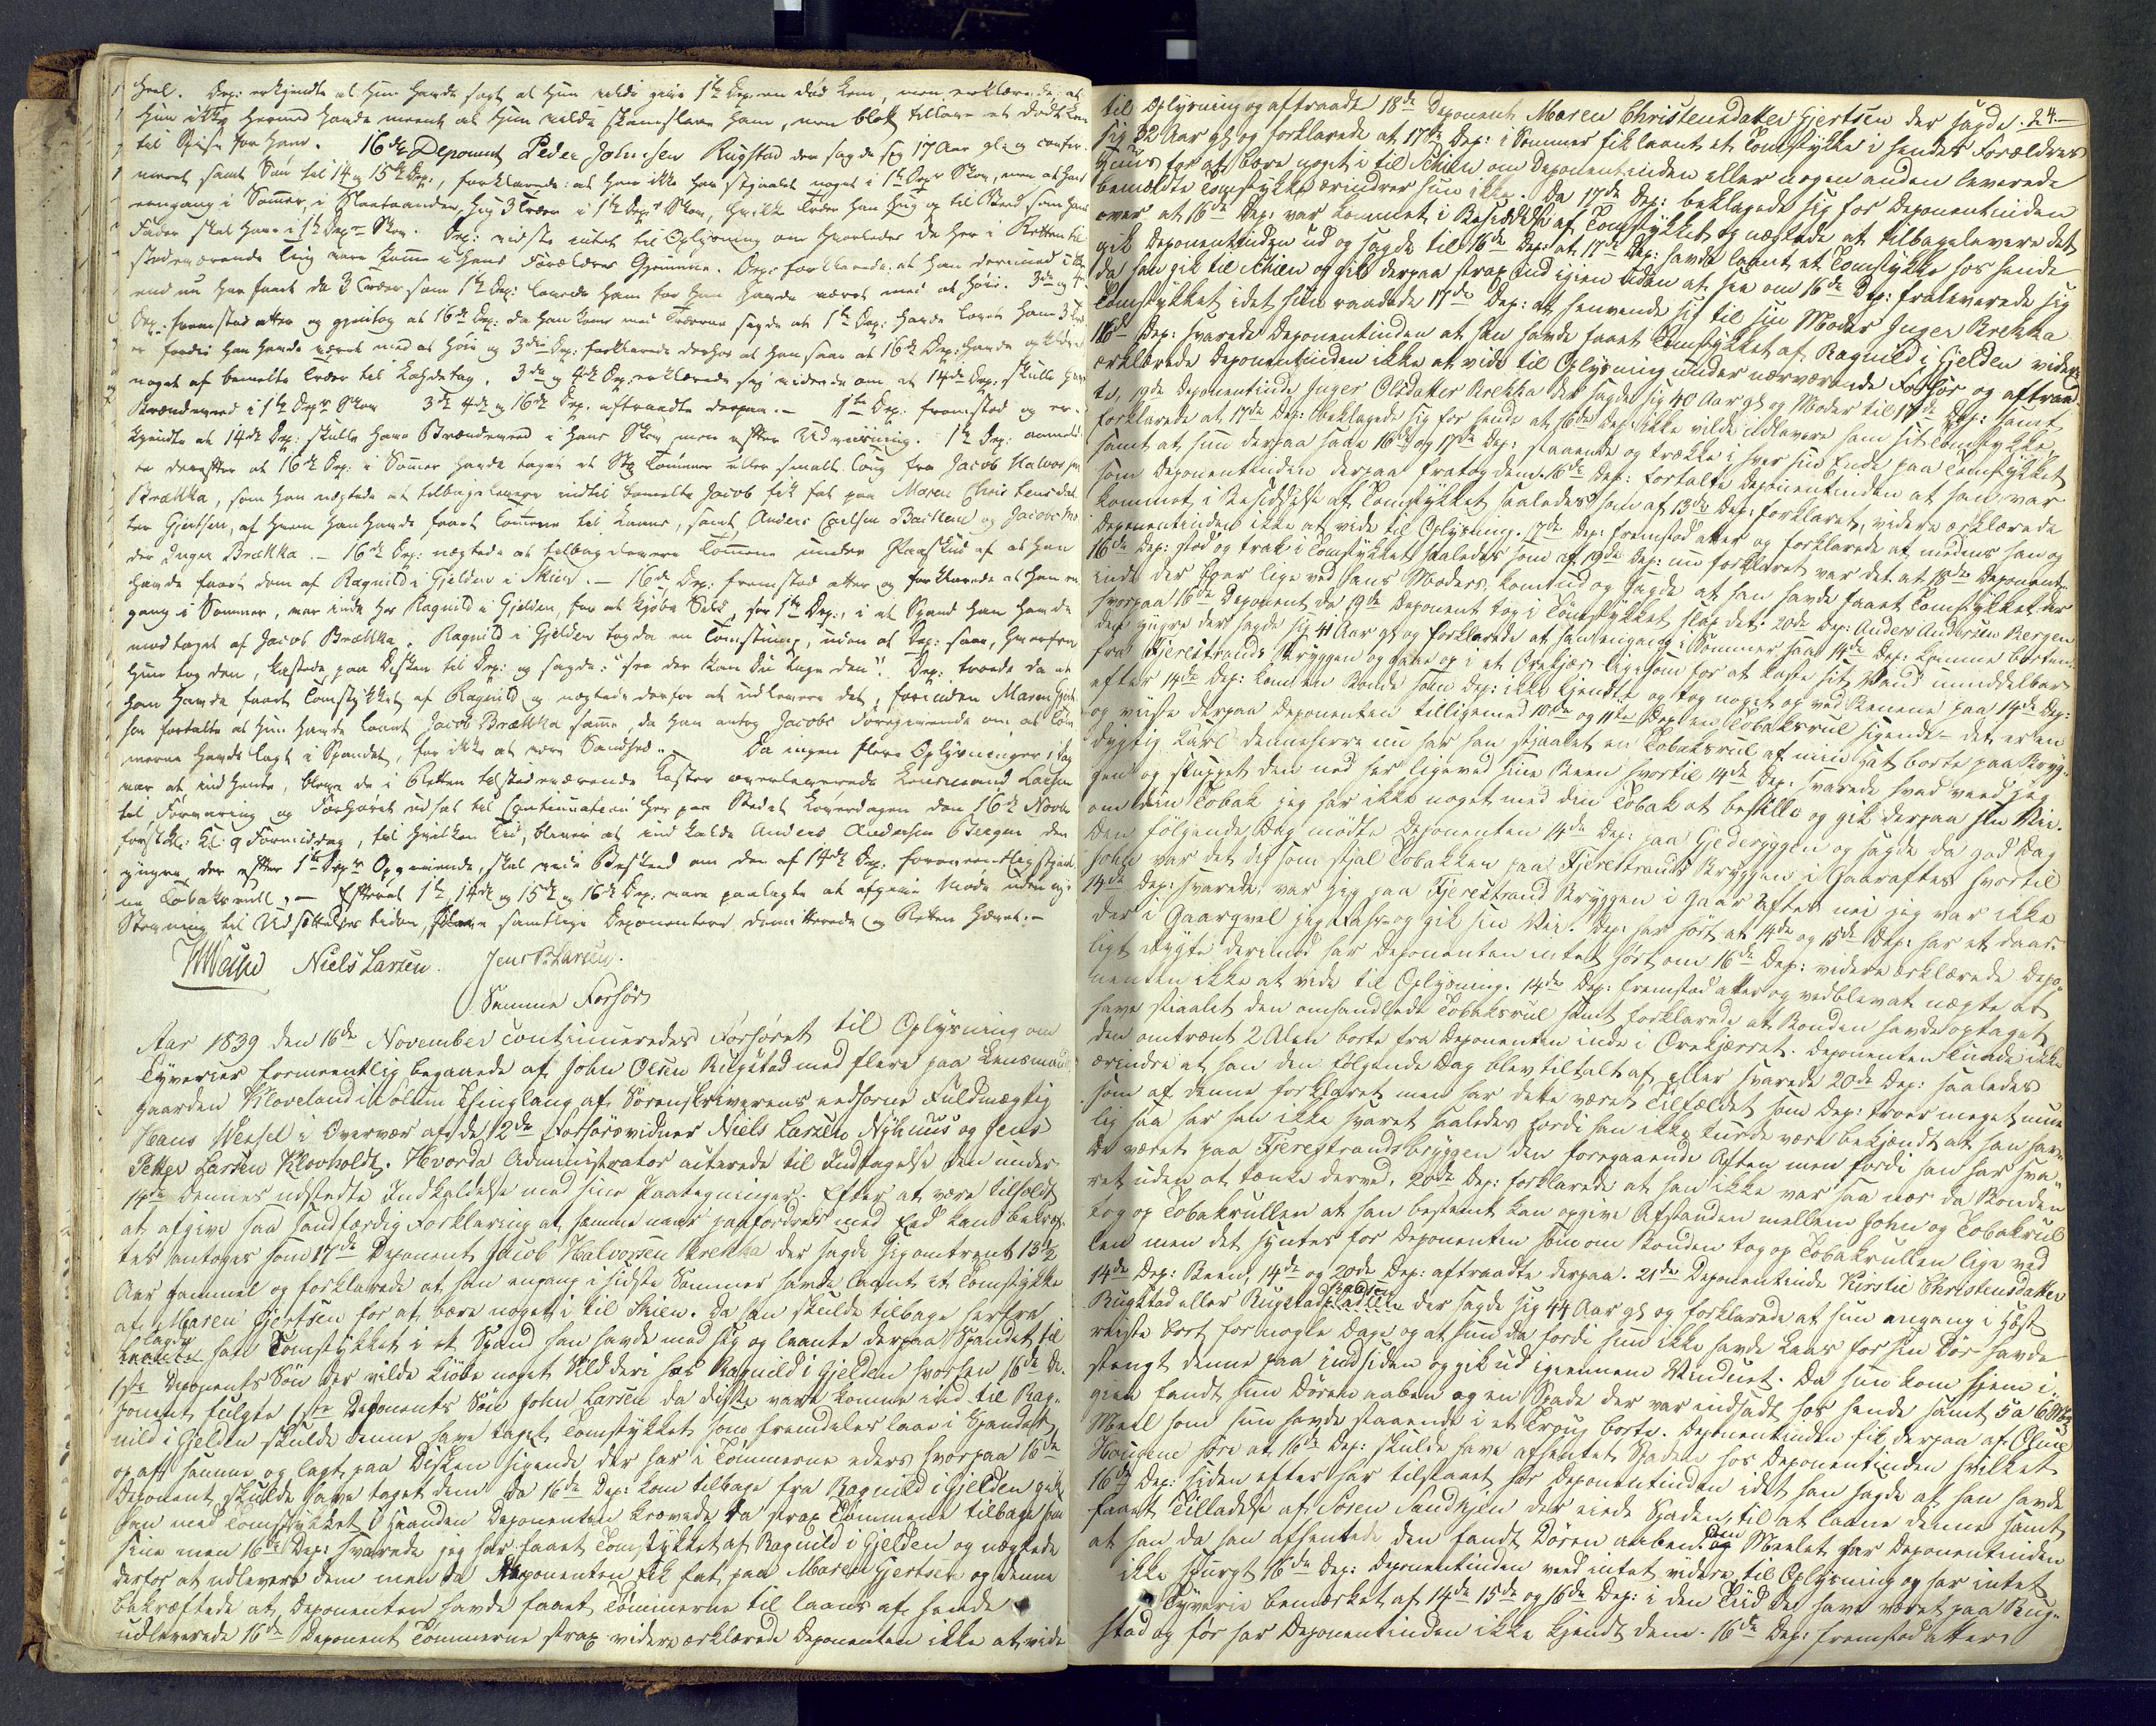 heel. Dep: erkjendte at hun havde sagt at hun vilde give 1ste Dep: en død Lam, men erklærede: at
hun ikke hermed havde meent at hun vilde ihjelslaae ham, men blot tillave et dødt Lam
til Spise for ham. 16de Deponent Peder Johnsen Rugstad der sagde sig 17 Aar gl: og confir-
meret samt Søn til 14 og 15de Dep:, forklarede: at han ikke har stjaalet noget i 1ste Dep: Skov, men at han
eengang i Sommer, i Slaataanden, hug 3 Træer i 1ste Dep: Skov, hvilke Træer han hug og til Brænd som hans
Fader skal have i 1ste Dep: Skov. Dep: vidste intet til Oplysning om hvorledes de her i Retten til
stedeværende Ting vare komne i hans Forældres Gjemme. Dep: forklarede: at han dermed ikke
end nu har faaet de 3 Træer som 1ste Dep: lovede ham for han havde været med at høie. 3de og 4de
Dep: fremstod atter og gjentog at 16de Dep: da han kom med Træerne sagde at 1ste Dep: havde lovet ham 3 Træ-
er fordi han havde været med at høie og 3die Dep: forklarede derhos at han saae at 16de Dep: havde
noget af bemelte Træer til 3de og 4de Dep: erklærede sig vidende om at 14de Dep: skulle have
Brændeveed i 1ste Dep: Skov 3de 4de og 16de Dep: aftraadte derpaa. — 1ste Dep: fremstod og er-
kjendte at 14de Dep: skulle have Brændeveed i hans Skov, men efter Udviisning. 1ste Dep: anmeld-
te derefter at 16de Dep: i Sommer havde taget et Stk Tømme eller smalt Toug fra Jacob Halvorsen
Brekka, som han nægtede at tilbagelevere indtil bemelte Jacob fik fat paa Maren Christensdat-
ter Gjertsen, af hvem han havde faaet Tømmene til Laans, samt Anders Carlsen Bakken og Jacobs Mo-
der Inger Brækka. — 16de Dep: nægtede at tilbagelevere Tømmene under Paaskud af at han
havde faaet dem af Ragnild i Gjelden i Skien. — 16de Dep: fremstod atter og forklarede at han en
gang i Sommer, var inde hos Ragnild i Gjelden, for at kjøbe Sild, for 1ste Dep:, i et Spand han havde
modtaget af Jacob Brækka. Ragnild i Gjelden tog da en Tømstump, uden at Dep: saae, hvorfra
hun tog den, kastede paa Disken til Dep: og sagde: "see der kan Du tage den." Dep: troede da at
han havde faaet Tomstykket af Ragnild og nægtede derfor at udlevere det, forinden Maren Gjert-
sen fortalte at hun havde laant Jacob Brækka samme, da han antog Jacobs Foregivende om at Tøm-
merne havde lagt i Spandet, for ikke at være Sandhed. — Da ingen flere Oplysninger i Dag
var at indhente, bleve de i Retten tilstedeværende Koster overleverede Lensmand Larsen
til Forvaring og Forhøret udsat til Continuation her paa Stedet Løverdagen den 16de Novbr
førstkl: Kl: 9 Formiddag, til hvilken Tid, bliver at indkalde Anders Andersen Bergen den
yngre, der efter 1ste Dep: Opgivende, skal vide Beskeed om den af 14de Dep: formeentlig stjaal-
ne Tobaksrull. — Efterat 1ste, 14de og 15de og 16de Dep: vare paalagte at afgive Møde uden ny
Stevning til Udsættelses Tiden, bleve samtlige Deponentere dimitterede og Retten hævet. —
Niels Larsen. Jens P. Larsen.
Samme Forhør
Aar 1839 den 16de November continueredes Forhøret til Oplysning om
Tyverier formeentlig begaaede af John Olsen Rugstad med flere paa Lensmand
gaarden Kloveland i Solum Thinglaug af Sorenskriverens eedsorne Fuldmægtig
Hans Wensel i Overvær af de 2de Forhørsvidner Niels Larsen Nyhuus og Jens
Petter Larsen Klovholdt. Hvorda Administrator acterede til Indtagelse den under
14de Dennes udstedte Indkaldelse med sine Paategninger. Efter at være tilholdt
at afgive saa sandfærdig Forklaring at samme naar paafordres med Eed kan bekræf-
tes antoges som 17de Deponent Jacob Halvorsen Brekka der sagde sig omtrent 13½
Aar gammel og forklarede at han engang i sidste Sommer havde laant et Tomstykke
af Maren Gjertsen for at bære noget i til Skien. Da han skulde tilbage herfra
lagde han Tomstykket i et Spand han havde med sig og laante derpaa Spandet til
1ste Deponents Søn der vilde kiøbe noget Sild deri hos Ragnild i Gjelden hvorhen 16de De-
ponent fulgte 1ste Deponents Søn John Larsen da disse vare komne ind til Rag-
nild i Gjelden skulde denne have taget Tomstykket som fremdeles laae i Spandet
op af samme og lagt paa Disken sigende der har i Tømmerne eders hvorpaa 16de
Deponent skulde have taget dem da 16de Dep: kom tilbage fra Ragnild i Gjelden gik
han med Tomstykket i Haanden Deponenten krævede da strax Tømmene tilbage som
sine men 16de Dep: svarede jeg har faaet Tomstykket af Ragnild i Gjelden og nægtede
derfor at udlevere dem men da Deponenten fik fat paa Maren Gjertsen og denne
bekræftede at Deponenten havde faaet Tømmerne til laans af hende
udleverede 16de Deponent Tømmerne strax videre erklærede Deponenten ikke at vide
24.
til Oplysning og aftraadte 18de Deponent Maren Christensdatter Gjertsen der sagde
sig 32 Aar gl: og forklarede at 17de Dep: i Sommer fik laant et Tomstykke i hendes Forældres
Huus for at bære noget i til Schien om Deponentinden eller nogen anden leverede
bemeldte Tomstykke erindrer hun ikke. Da 17de Dep: beklagede sig for Deponentinden
over at 16de Dep: var kommet i Besiddelse af Tomstykket og nægtede at tilbagelevere det
gik Deponentinden ud og sagde til 16de Dep: at 17de Dep: havde laant et Tomstykke hos hende
da han gik til Schien og gik derpaa strax ind igjen uden at see om 16de Dep: fraleverede sig
Tomstykket idet hun raadede 17de Dep: at henvende sig til sin Moder Inger Brekka
16de Dep: svarede Deponentinden at han havde faaet Tomstykket af Ragnild i Gjelden videre
erklærede Deponentinden ikke at vide til Oplysning under nærværende Forhør og aftraad-
te, 19de Deponentinde Inger Olsdatter Brekka der sagde sig 40 Aar gl: og Moder til 17de Dep: samt
forklarede at 17de Dep: beklagede sig for hende at 16de Dep: ikke vilde udlevere ham sit Tomstykke
samt at hun derpaa saae 16de og 17de Dep: staaende og trække i hver sin Ende paa Tomstykket
som Deponentinden derpaa fratog dem. 16de Dep: fortalte Deponentinden at han var
kommet i Besiddelse af Tomstykket saaledes som af 13de Dep: forklaret, videre erklærede
Deponentinden ikke at vide til Oplysning. 17de Dep: fremstod atter og forklarede at medens han og
16de Dep: stod og trak i Tomstykket saaledes som af 19de Dep: nu forklaret var det at 18de Deponent-
inde der boer lige ved hans Moders, kom ud og sagde at han havde faaet Tomstykket der
hvorpaa 16de Deponent da 19de Deponent tog i Tømstykket slap det. 20de Dep: Anders Andersen Bergen
den yngre der sagde sig 41 Aar gl: og forklarede at han engang i Sommer saae 14de Dep: komme borten-
fra Fjerestrands Bryggen og gaae op i et Orekjær ligesom for at kaste sit Vand umiddelbar
efter 14de Dep: kom en Bonde som Dep: ikke kjendte og tog noget op ved Benene paa 14de Dep:
og viiste derpaa Deponenten tilligemed 10de og 11te Dep: en Tobaksrul sigende — det er en
dygtig Karl denneherre nu har han stjaalet en Tobaksrul af min Hat borte paa Bryg-
gen og stuppet den ned her ligeved sine Been hvortil 14de Dep: svarede hvad veed jeg
om din Tobak jeg har ikke noget med din Tobak at bestille og gik derpaa sin Vei.
Den følgende Dag mødte Deponenten 14de Dep: paa Gjederyggen og sagde da god Dag
John var det du som stjal Tobakken paa Fjerestrands Bryggen i Gaaraftes hvortil
14de Dep: svarede: var jeg paa Fjerestrand Bryggen i Gaar Aftes nei jeg var ikke
der i Gaarqvel og gik sin Vei. Dep: har hørt at 14de og 15de Dep: har et daar-
ligt Rygte derimod har Deponenten intet hørt om 16de Dep: videre erklærede Depo-
nenten ikke at vide til Oplysning. 14de Dep: fremstod atter og vedblev at nægte at
have stiaalet den omhandlede Tobaksrul samt forklarede at Bonden havde optaget
den omtrent 2 Alen borte fra Deponenten inde i Orekjærret. Deponenten kunde ikke
erindre at han den følgende Dag blev tiltalt af eller svarede 20de Dep: saaledes
som af denne forklaret men har dette været Tilfældet som Dep: troer meget mue-
lig saa har han ikke svaret saaledes fordi han ikke turde være bekjendt at han hav-
de været paa Fjerestrandsbryggen den foregaaende Aften men fordi han har sva-
ret uden at tænke derved. 20de Dep: forklarede at han ikke var saa nær da Bonden
tog op Tobakrullen at han bestemt kan opgive Afstanden mellem John og Tobakrul-
len men det syntes for Deponenten som om Bonden tog op Tobakrullen lige ved
14de Dep: Been, 14de og 20de Dep: aftraadte derpaa. 21de Deponentinde Kirstie Christensdatter
Rugstad eller Rugstad der sagde sig 44 Aar gl: og forklarede at hun engang i Høst
reiste bort for nogle Dage og at hun da fordi hun ikke havde Laas for sin Dør havde
stængt denne paa indsiden og gik ud igiennem Vinduet. Da hun kom hjem i-
gien fandt hun Døren aaben og en Spade der var indsadt hos hende samt 5 a 6
Meel som hun havde staaende i et Troug borte. Deponentinden fik derpaa af Oline
Hougene høre at 16de Dep: skulde have afhentet Spaden hos Deponentinden hvilket
16de Dep: siden efter har tilstaaet for Deponentinden idet han sagde at han havde
faaet Tilladelse af Søren Sandvjen der eiede Spaden, til at laane denne samt
at han da han afhentede den fandt Døren aaben. Om Meelet har Deponentinden
ikke spurgt 16de Dep: Deponentinden veed intet videre til Oplysning og har intet
Tyverie bemærket af 14de 15de og 16de Dep: i den Tiid de have været paa Rug-
stad og før har Deponentinden ikke kjendt dem. 16de Dep: fremstod atter